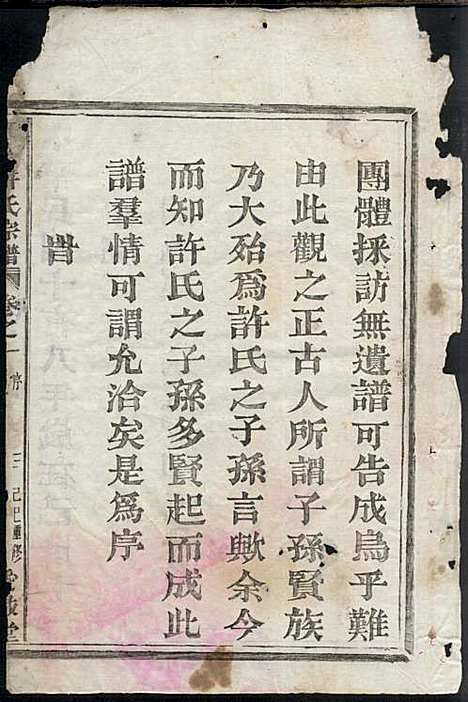 團體採訪無遺譜可告成烏乎難
由此觀之正古人所謂子孫賢族
乃大殆爲許氏之子孫言歟余今
而知許氏之子孫多賢起而成此
譜羣情可謂允洽矣是爲序
時
許氏宗譜 卷之一 序 三 己巳重修